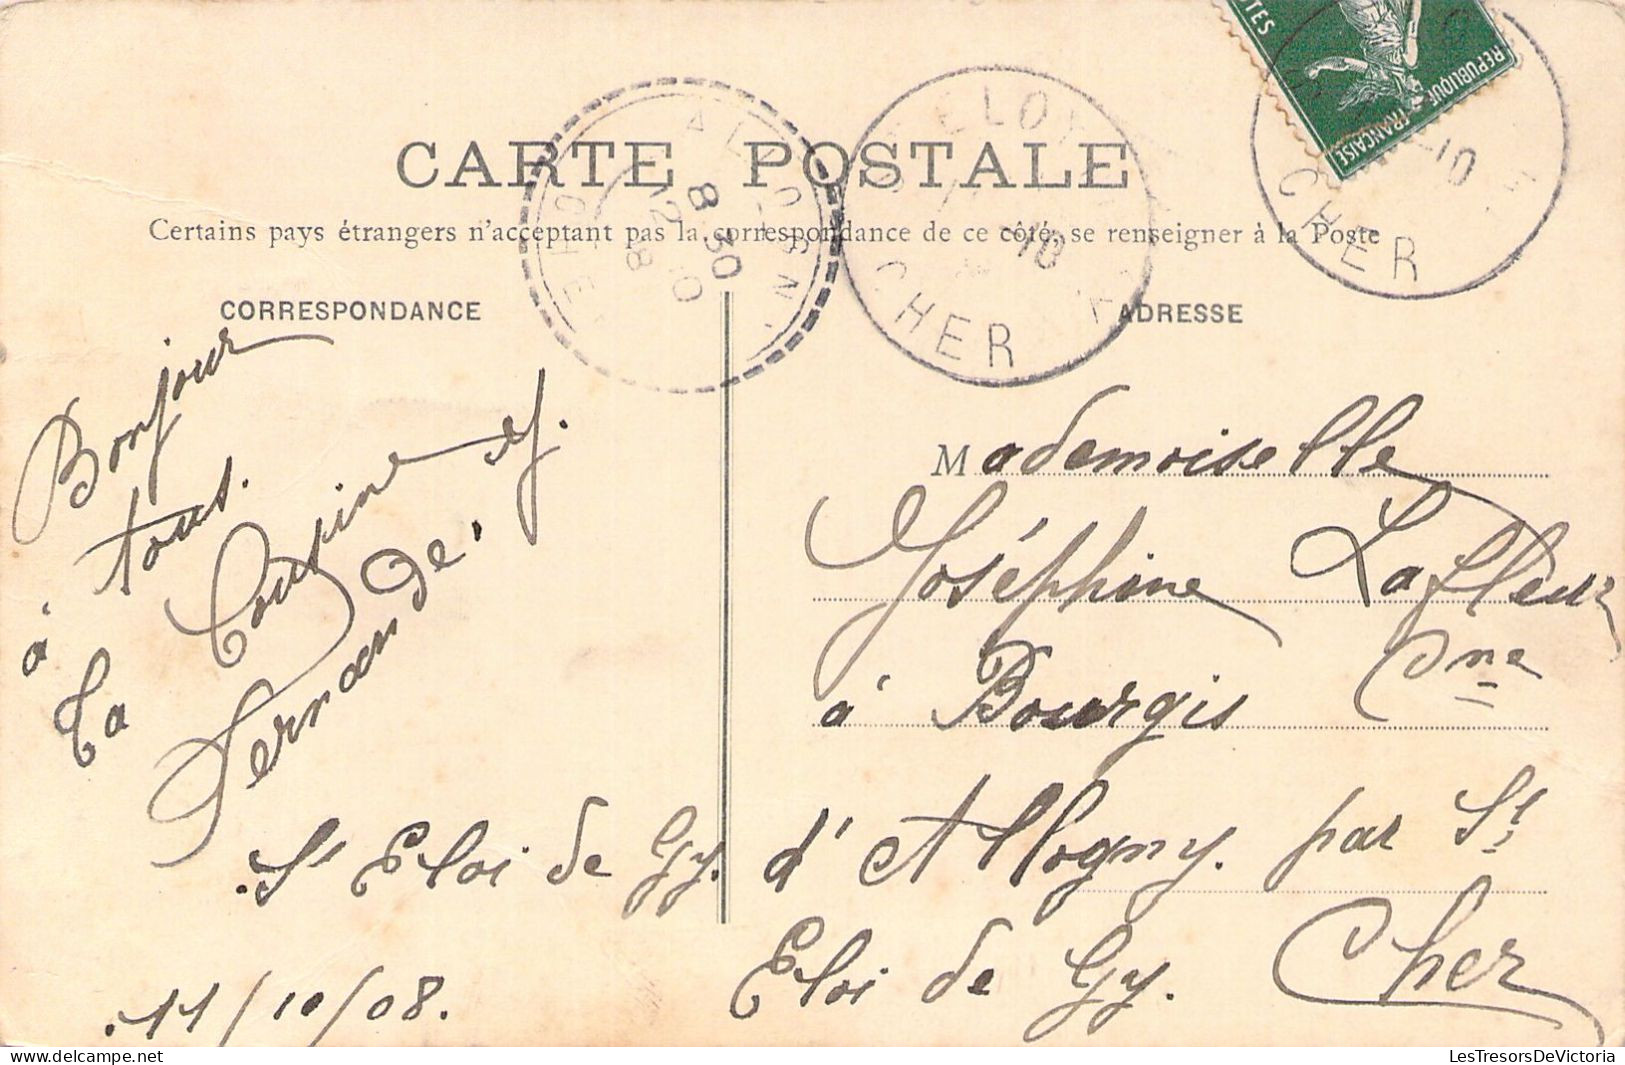 CARTE POSTALE
Certains pays étrangers n'acceptant pas la correspondance de ce côté, se renseigner à la Poste
CORRESPONDANCE
ADRESSE
Bonjour
à tous.
Ta Cousine
Fernande.
St Eloi de Gy.
11/10/08.
Mademoiselle
Joséphine Lafleur
à Bourgis Cne
d'Allogny. par St
Eloi de Gy. Cher
CHER
8 30
12 10
CHER
10
CHER
10
REPUBLIQUE FRANÇAISE
LesTresorsDeVictoria